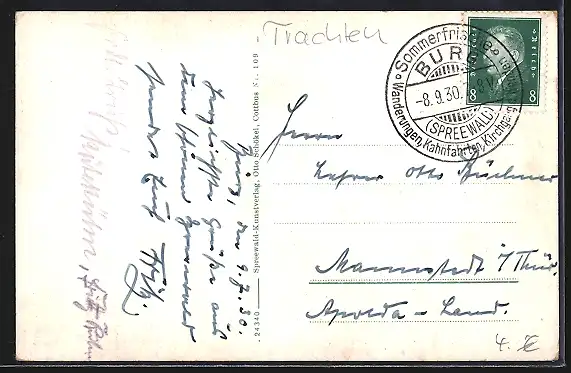 Trachten
Sommerfrische
BURG
-8.9.30.
(SPREEWALD)
Wanderungen, Kahnfahrten, Kirchgang
8 8
Burg, den 9.9.30.
Herzlichste Grüße aus
dem schönen Spreewald
sendet Euch Fritz
24340 Spreewald-Kunstverlag, Otto Schökel, Cottbus Nr. 109
Herrn
Lehrer Otto Büchner
Mannstedt i/Thür.
Apolda-Land.
4. €